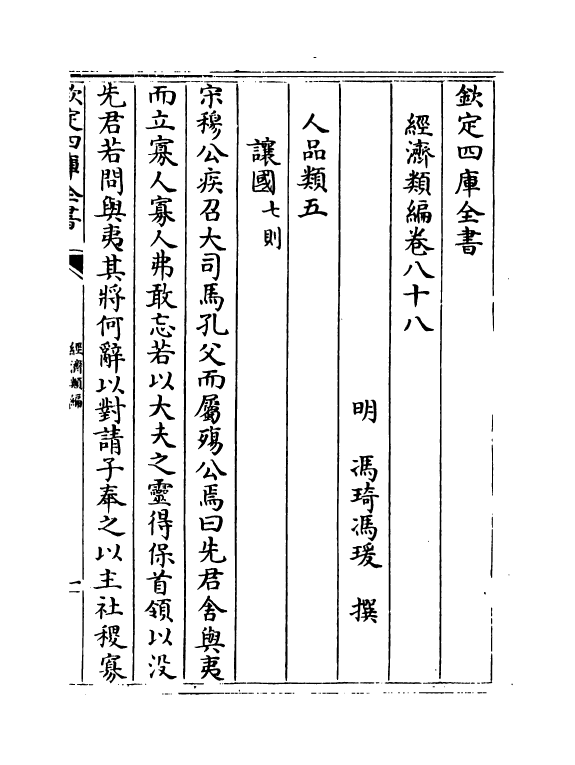 欽定四庫全書
經濟類編卷八十八
明　馮琦馮瑗　撰
人品類五
讓國七則
宋穆公疾召大司馬孔父而屬殤公焉曰先君舍與夷
而立寡人寡人弗敢忘若以大夫之靈得保首領以没
先君若問與夷其將何辭以對請子奉之以主社稷寡
欽定四庫全書
經濟類編
一